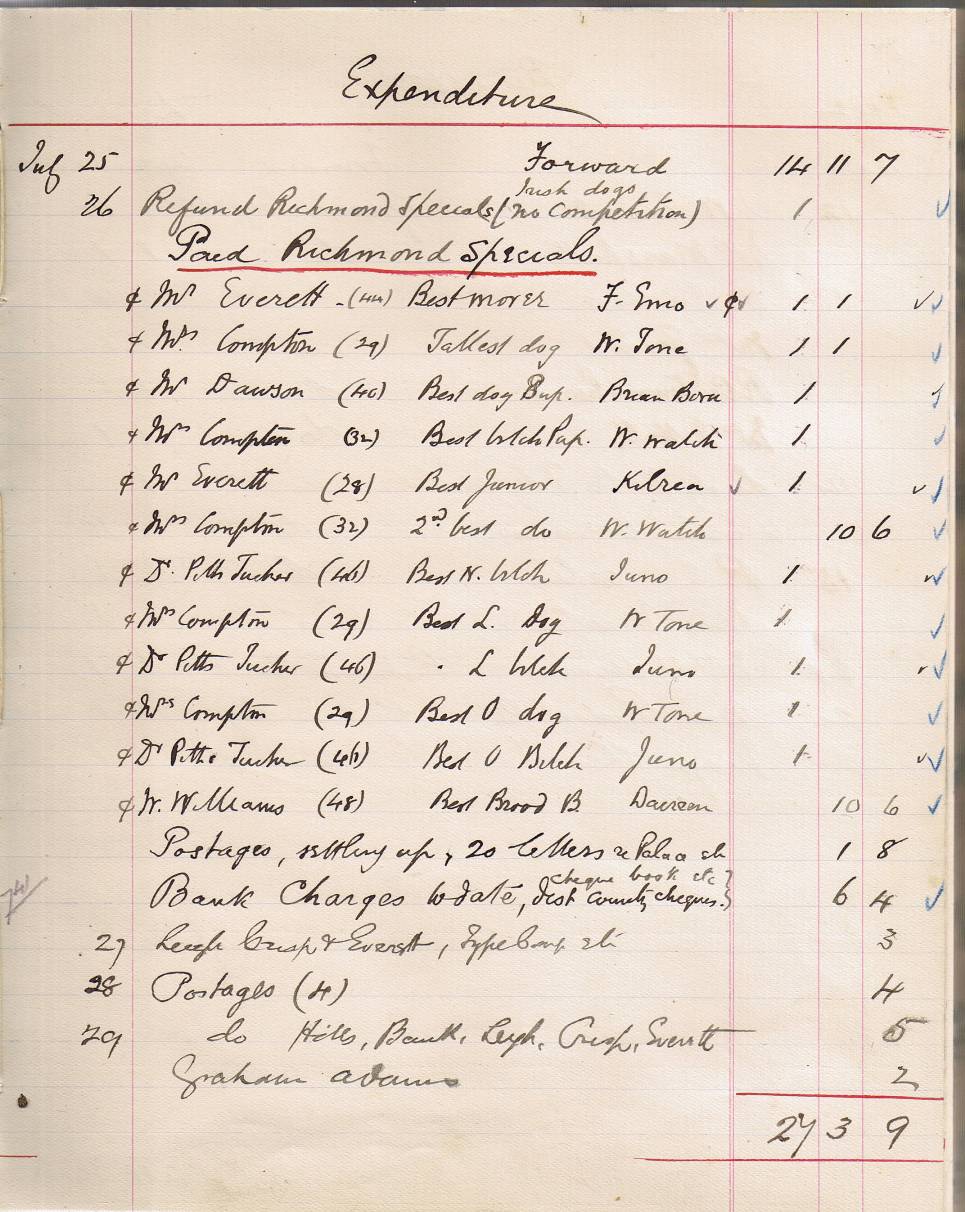 Expenditure
July 25 Forward 14 11 7
Irish dogs
26 Refund Richmond Specials (no Competition) 1
Paid Richmond Specials.
¢ Mr Everett - (44) Best mover F. Emo 1 1
¢ Mrs Compton (29) Tallest dog W. Tone 1 1
¢ Mr Dawson (40) Best dog Pup. Brian Boru 1
¢ Mrs Compton (32) Best bitch Pup. W. Watch 1
¢ Mr Everett (28) Best Junior Kilrea 1
¢ Mrs Compton (32) 2nd best do W. Watch 10 6
¢ Dr. Pitts Tucker (46) Best N. bitch Juno 1
¢ Mrs Compton (29) Best L. Dog W Tone 1
¢ Dr Pitts Tucker (46) " L bitch Juno 1
¢ Mrs Compton (29) Best O dog W Tone 1
¢ Dr Pitts Tucker (46) Best O Bitch Juno 1
¢ W. Williams (48) Best Brood B. 10 6
Postages, settling up, 20 letters re Palace etc 1 8
cheque book etc
Bank Charges to date, Dist County cheques. 6 4
27 Leigh Crisp & Everett, etc 3
28 Postages (4) 4
29 do Hills, Bank, Leigh, Crisp, Everett 5
Graham adams 2
27 3 9